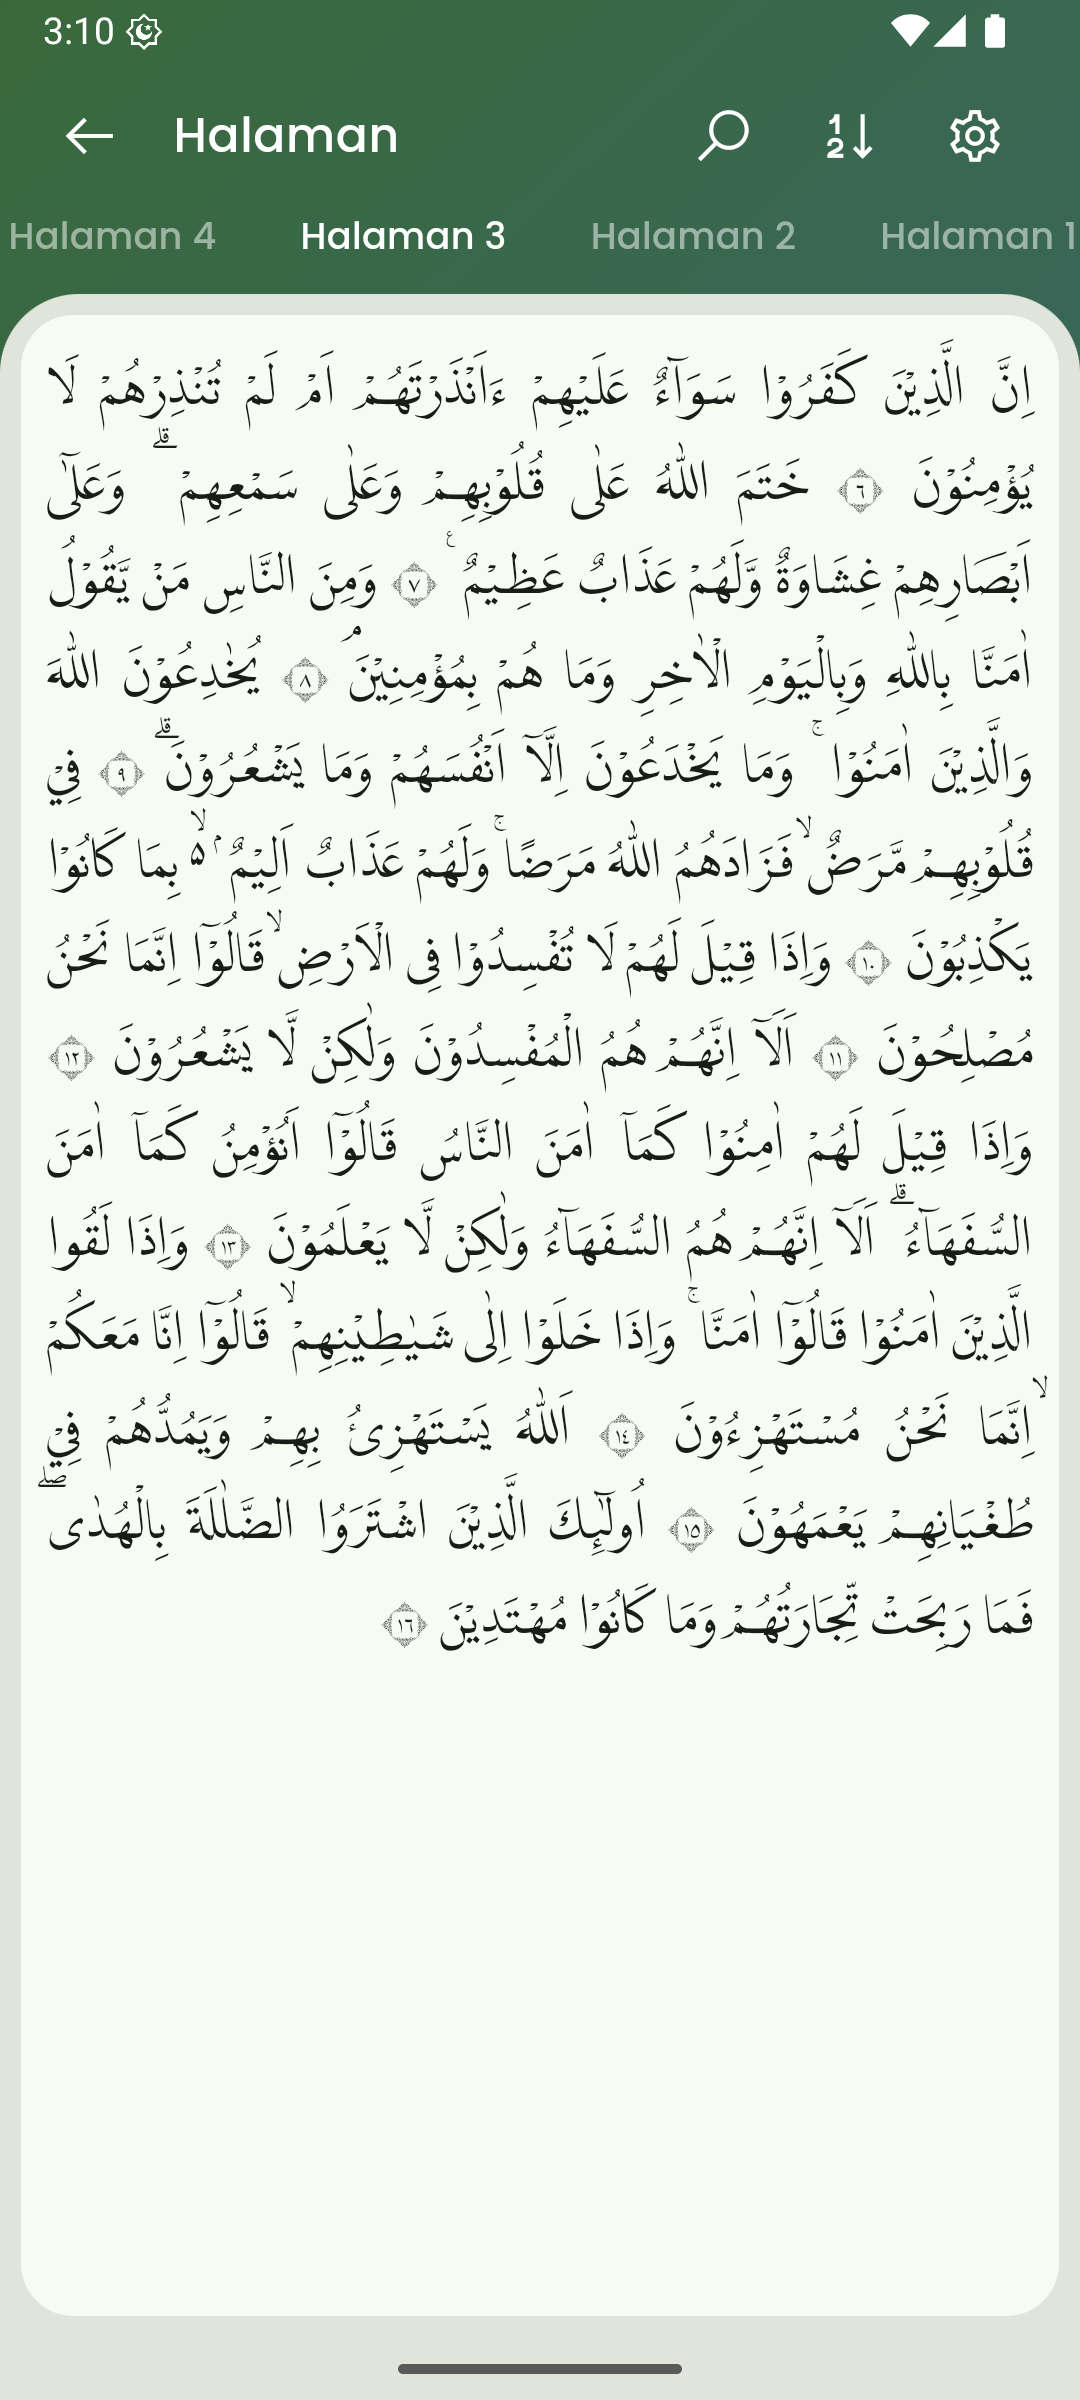 3:10
Halaman
Halaman 4 Halaman 3 Halaman 2 Halaman 1
اِنَّ الَّذِيْنَ كَفَرُوْا سَوَاۤءٌ عَلَيْهِمْ ءَاَنْذَرْتَهُمْ اَمْ لَمْ تُنْذِرْهُمْ لَا
يُؤْمِنُوْنَ ٦ خَتَمَ اللّٰهُ عَلٰى قُلُوْبِهِمْ وَعَلٰى سَمْعِهِمْ ۗ وَعَلٰٓى
اَبْصَارِهِمْ غِشَاوَةٌ وَّلَهُمْ عَذَابٌ عَظِيْمٌ ࣖ ٧ وَمِنَ النَّاسِ مَنْ يَّقُوْلُ
اٰمَنَّا بِاللّٰهِ وَبِالْيَوْمِ الْاٰخِرِ وَمَا هُمْ بِمُؤْمِنِيْنَۘ ٨ يُخٰدِعُوْنَ اللّٰهَ
وَالَّذِيْنَ اٰمَنُوْا ۚ وَمَا يَخْدَعُوْنَ اِلَّآ اَنْفُسَهُمْ وَمَا يَشْعُرُوْنَۗ ٩ فِيْ
قُلُوْبِهِمْ مَّرَضٌۙ فَزَادَهُمُ اللّٰهُ مَرَضًاۚ وَلَهُمْ عَذَابٌ اَلِيْمٌ ۢ ۵ۙ بِمَا كَانُوْا
يَكْذِبُوْنَ ١٠ وَاِذَا قِيْلَ لَهُمْ لَا تُفْسِدُوْا فِى الْاَرْضِۙ قَالُوْٓا اِنَّمَا نَحْنُ
مُصْلِحُوْنَ ١١ اَلَآ اِنَّهُمْ هُمُ الْمُفْسِدُوْنَ وَلٰكِنْ لَّا يَشْعُرُوْنَ ١٢
وَاِذَا قِيْلَ لَهُمْ اٰمِنُوْا كَمَآ اٰمَنَ النَّاسُ قَالُوْٓا اَنُؤْمِنُ كَمَآ اٰمَنَ
السُّفَهَاۤءُ ۗ اَلَآ اِنَّهُمْ هُمُ السُّفَهَاۤءُ وَلٰكِنْ لَّا يَعْلَمُوْنَ ١٣ وَاِذَا لَقُوا
الَّذِيْنَ اٰمَنُوْا قَالُوْٓا اٰمَنَّا ۚ وَاِذَا خَلَوْا اِلٰى شَيٰطِيْنِهِمْ ۙ قَالُوْٓا اِنَّا مَعَكُمْ
ۙاِنَّمَا نَحْنُ مُسْتَهْزِءُوْنَ ١٤ اَللّٰهُ يَسْتَهْزِئُ بِهِمْ وَيَمُدُّهُمْ فِيْ
طُغْيَانِهِمْ يَعْمَهُوْنَ ١٥ اُولٰۤىِٕكَ الَّذِيْنَ اشْتَرَوُا الضَّلٰلَةَ بِالْهُدٰىۖ
فَمَا رَبِحَتْ تِّجَارَتُهُمْ وَمَا كَانُوْا مُهْتَدِيْنَ ١٦